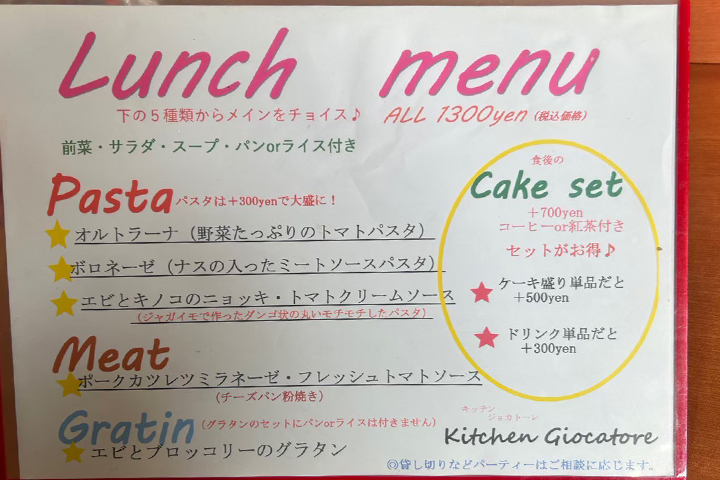 Lunch menu
下の5種類からメインをチョイス♪ ALL 1300yen (税込価格)
前菜・サラダ・スープ・パンorライス付き
Pasta パスタは+300yenで大盛に!
オルトラーナ(野菜たっぷりのトマトパスタ)
ボロネーゼ(ナスの入ったミートソースパスタ)
エビとキノコのニョッキ・トマトクリームソース
(ジャガイモで作ったダンゴ状の丸いモチモチしたパスタ)
Meat
ポークカツレツミラネーゼ・フレッシュトマトソース
(チーズパン粉焼き)
Gratin (グラタンのセットにパンorライスは付きません)
エビとブロッコリーのグラタン
食後の
Cake set
+700yen
コーヒーor紅茶付き
セットがお得♪
ケーキ盛り単品だと
+500yen
ドリンク単品だと
+300yen
キッチン
ジョカトーレ
Kitchen Giocatore
◎貸し切りなどパーティーはご相談に応じます。